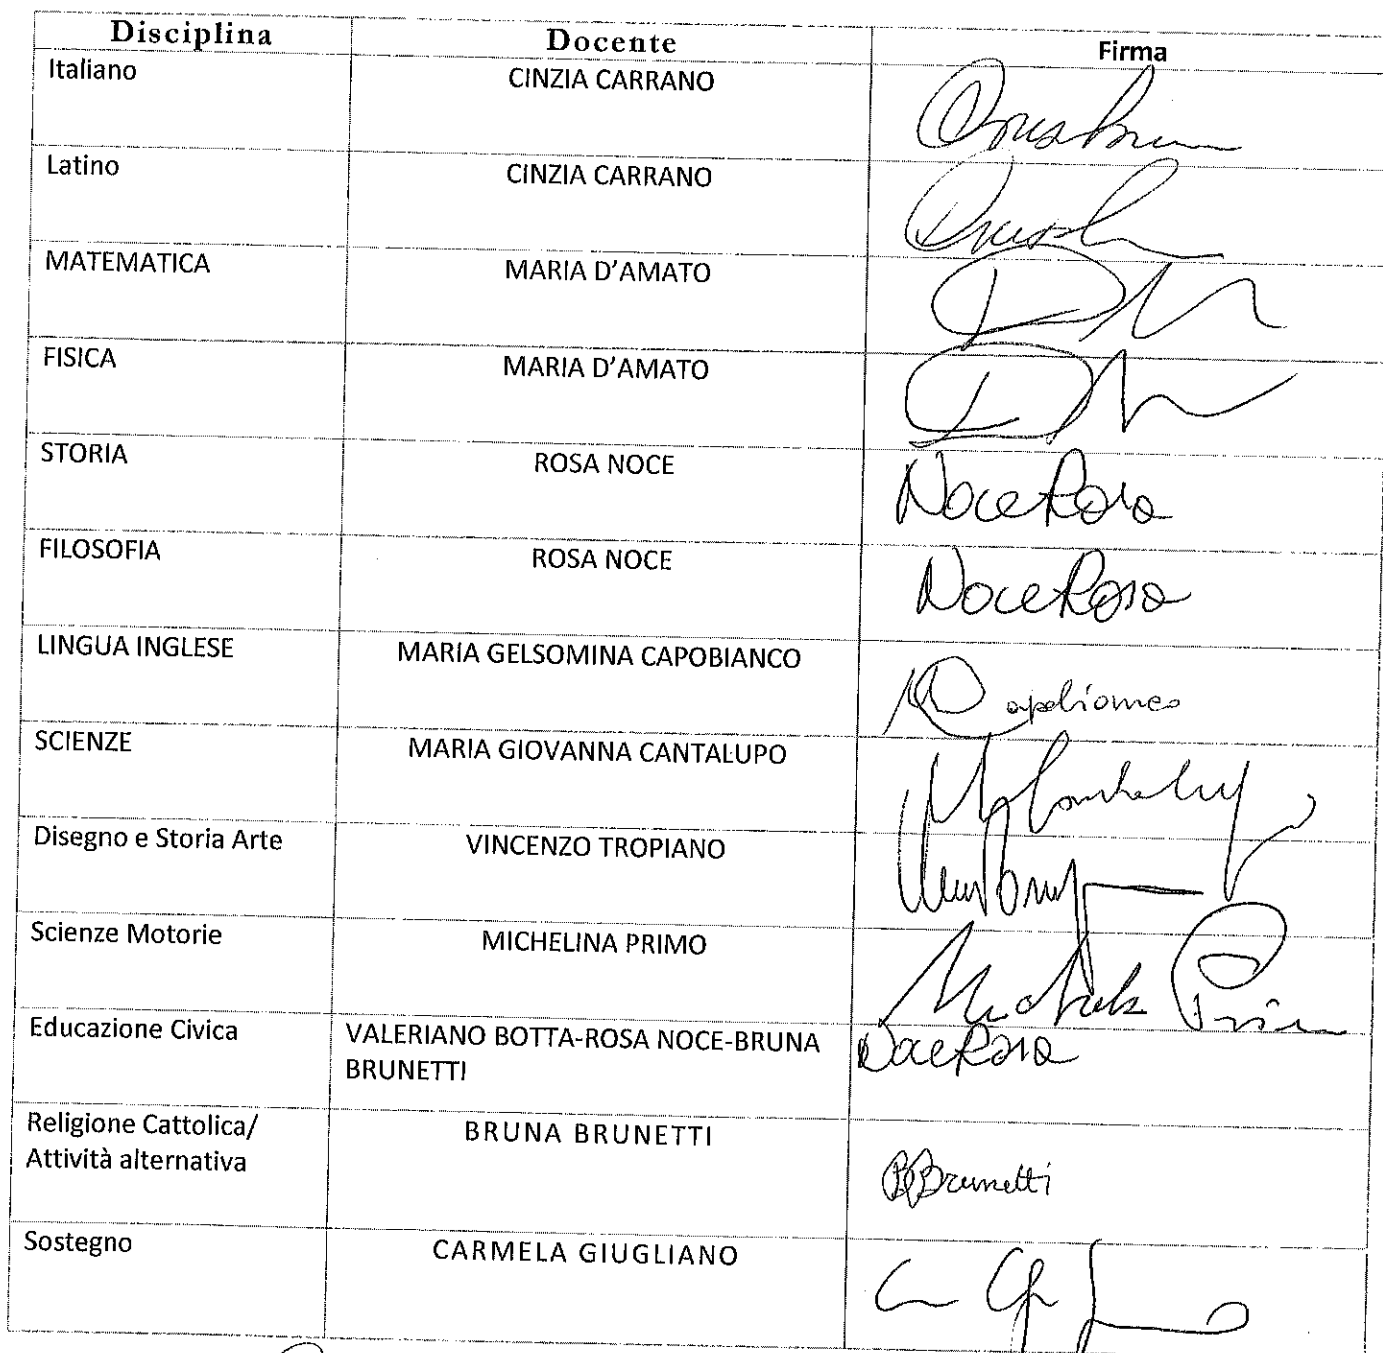 Disciplina Docente Firma
Italiano CINZIA CARRANO
Latino CINZIA CARRANO
MATEMATICA MARIA D'AMATO
FISICA MARIA D'AMATO
STORIA ROSA NOCE Noce Rosa
FILOSOFIA ROSA NOCE Noce Rosa
LINGUA INGLESE MARIA GELSOMINA CAPOBIANCO
SCIENZE MARIA GIOVANNA CANTALUPO
Disegno e Storia Arte VINCENZO TROPIANO
Scienze Motorie MICHELINA PRIMO
Educazione Civica VALERIANO BOTTA-ROSA NOCE-BRUNA Noce Rosa
BRUNETTI
Religione Cattolica/ BRUNA BRUNETTI
Attività alternativa BBrunetti
Sostegno CARMELA GIUGLIANO